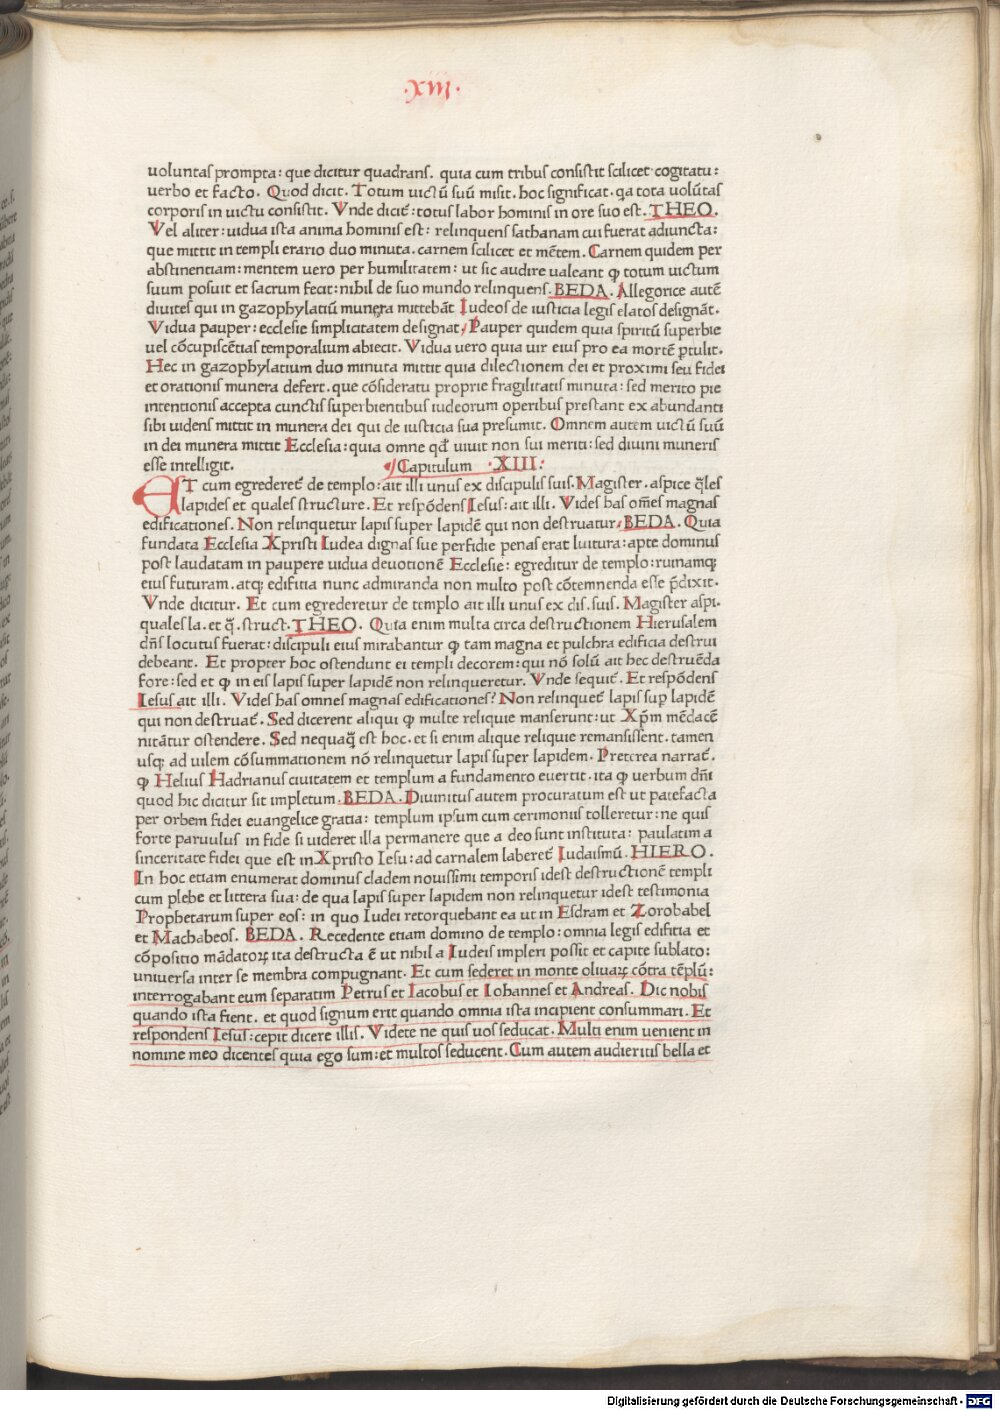 ·XIII·
uoluntas prompta: que dicitur quadrans. quia cum tribus consistit scilicet cogitatu:
uerbo et facto. Quod dicit. Totum uictū suū misit. hoc significat. qa tota uolūtas
corporis in uictu consistit. Vnde dicit᷑: totus labor hominis in ore suo est. THEO.
Vel aliter: uidua ista anima hominis est: relinquens sathanam cui fuerat adiuncta:
que mittit in templi erario duo minuta. carnem scilicet et mētem. Carnem quidem per
abstinentiam: mentem uero per humilitatem: ut sic audire ualeant ꝙ totum uictum
suum posuit et sacrum fecit: nihil de suo mundo relinquens. BEDA. Allegorice autē
diuites qui in gazophylatiū munera mittebāt Iudeos de iusticia legis elatos designāt.
Vidua pauper: ecclesie simplicitatem designat. Pauper quidem quia spiritū superbie
uel cōcupiscētias temporalium abiecit. Vidua uero quia uir eius pro ea mortē ꝑtulit.
Hec in gazophylatium duo minuta mittit quia dilectionem dei et proximi seu fidei
et orationis munera defert. que cōsideratu proprie fragilitatis minuta: sed merito pie
intentionis accepta cunctis superbientibus iudeorum operibus prestant ex abundanti
sibi uidens mittit in munera dei qui de iusticia sua presumit. Omnem autem uictū suū
in dei munera mittit Ecclesia: quia omne qd̄ uiuit non sui meriti: sed diuini muneris
esse intelligit. Capitulum ·XIII:
ET cum egrederet᷑ de templo: ait illi unus ex discipulis suis. Magister. aspice q̄les
lapides et quales structure. Et respōdens Iesus: ait illi. Vides has om̄es magnas
edificationes. Non relinquetur lapis super lapidē qui non destruatur. BEDA. Quia
fundata Ecclesia Xpristi Iudea dignas sue perfidie penas erat luitura: apte dominus
post laudatam in paupere uidua deuotionē Ecclesie: egreditur de templo: ruinamqꝫ
eius futuram. atqꝫ edifitia nunc admiranda non multo post cōtemnenda esse p̄dixit.
Vnde dicitur. Et cum egrederetur de templo ait illi unus ex dis. suis. Magister aspi.
quales la. et q̄. struct. THEO. Quia enim multa circa destructionem Hierusalem
dn̄s locutus fuerat: discipuli eius mirabantur ꝙ tam magna et pulchra edificia destrui
debeant. Et propter hoc ostendunt ei templi decorem: qui nō solū ait hec destruēda
fore: sed et ꝙ in eis lapis super lapidē non relinqueretur. Vnde sequit᷑. Et respōdens
Iesus ait illi. Vides has omnes magnas edificationes? Non relinquet᷑ lapis suꝑ lapidē
qui non destruat᷑. Sed dicerent aliqui ꝙ multe reliquie manserunt: ut Xp̄m mēdacē
nitātur ostendere. Sed nequaq̄ est hoc. et si enim alique reliquie remansissent. tamen
usqꝫ ad uilem cōsummationem nō relinquetur lapis super lapidem. Preterea narrat᷑.
ꝙ Helius Hadrianus ciuitatem et templum a fundamento euertit. ita ꝙ uerbum dn̄i
quod hic dicitur sit impletum. BEDA. Diuinitus autem procuratum est ut patefacta
per orbem fidei euangelice gratia: templum ipsum cum cerimoniis tolleretur: ne quis
forte paruulus in fide si uideret illa permanere que a deo sunt instituta: paulatim a
sinceritate fidei que est in Xpristo Iesu: ad carnalem laberet᷑ Iudaismū. HIERO.
In hoc etiam enumerat dominus cladem nouissimi temporis idest destructionē templi
cum plebe et littera sua: de qua lapis super lapidem non relinquetur idest testimonia
Prophetarum super eos: in quo Iudei retorquebant ea ut in Esdram et Zorobabel
et Machabeos. BEDA. Recedente etiam domino de templo: omnia legis edifitia et
cōpositio mādatoꝝ ita destructa ē ut nihil a Iudeis impleri possit et capite sublato:
uniuersa inter se membra compugnant. Et cum sederet in monte oliuaꝝ cōtra tēplū:
interrogabant eum separatim Petrus et Iacobus et Iohannes et Andreas. Dic nobis
quando ista fient. et quod signum erit quando omnia ista incipient consummari. Et
respondens Iesus: cepit dicere illis. Videte ne quis uos seducat. Multi enim uenient in
nomine meo dicentes quia ego sum: et multos seducent. Cum autem audieritis bella et
Digitalisierung gefördert durch die Deutsche Forschungsgemeinschaft - DFG